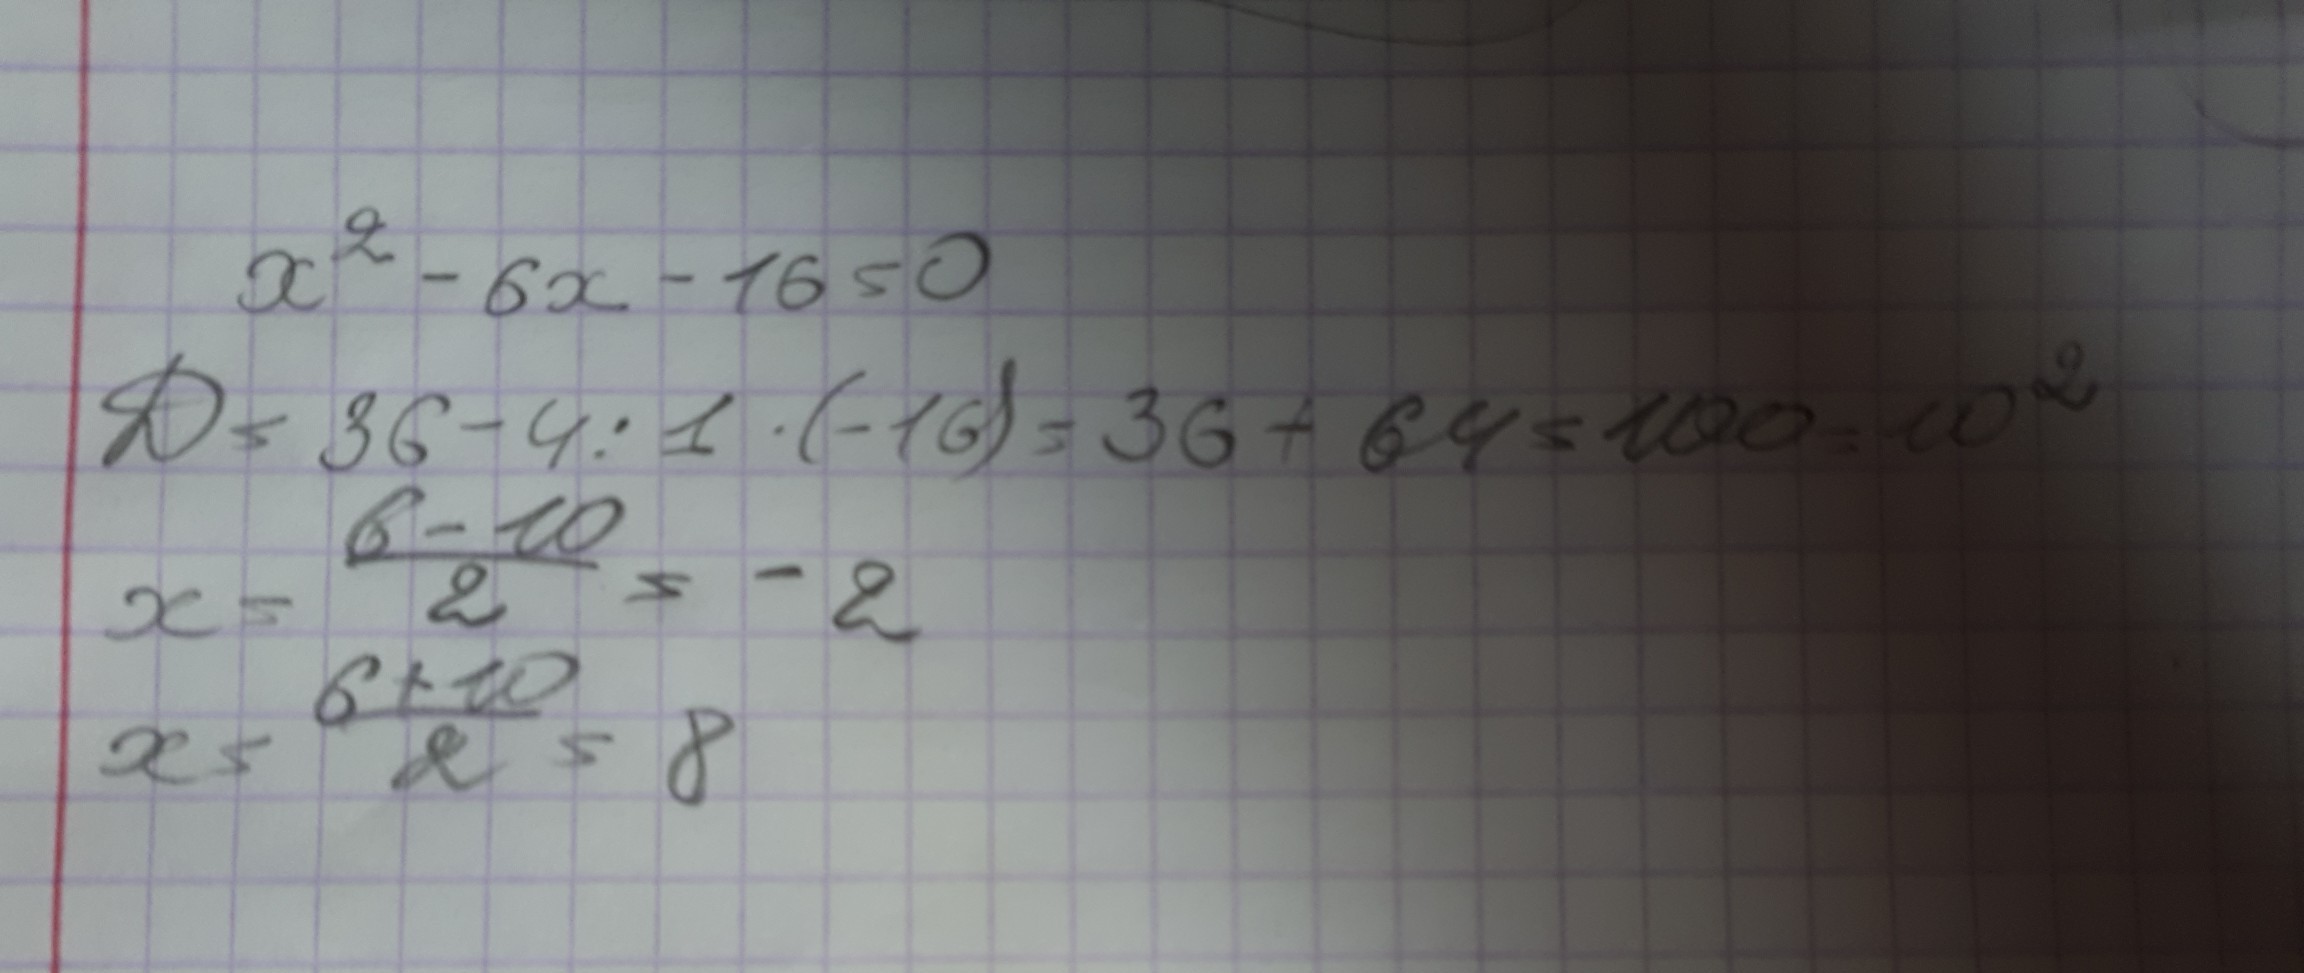 x² - 6x - 16 = 0
D = 36 - 4 : 1 · (-16) = 36 + 64 = 100 = 10²
x = (6 - 10)/2 = -2
x = (6 + 10)/2 = 8